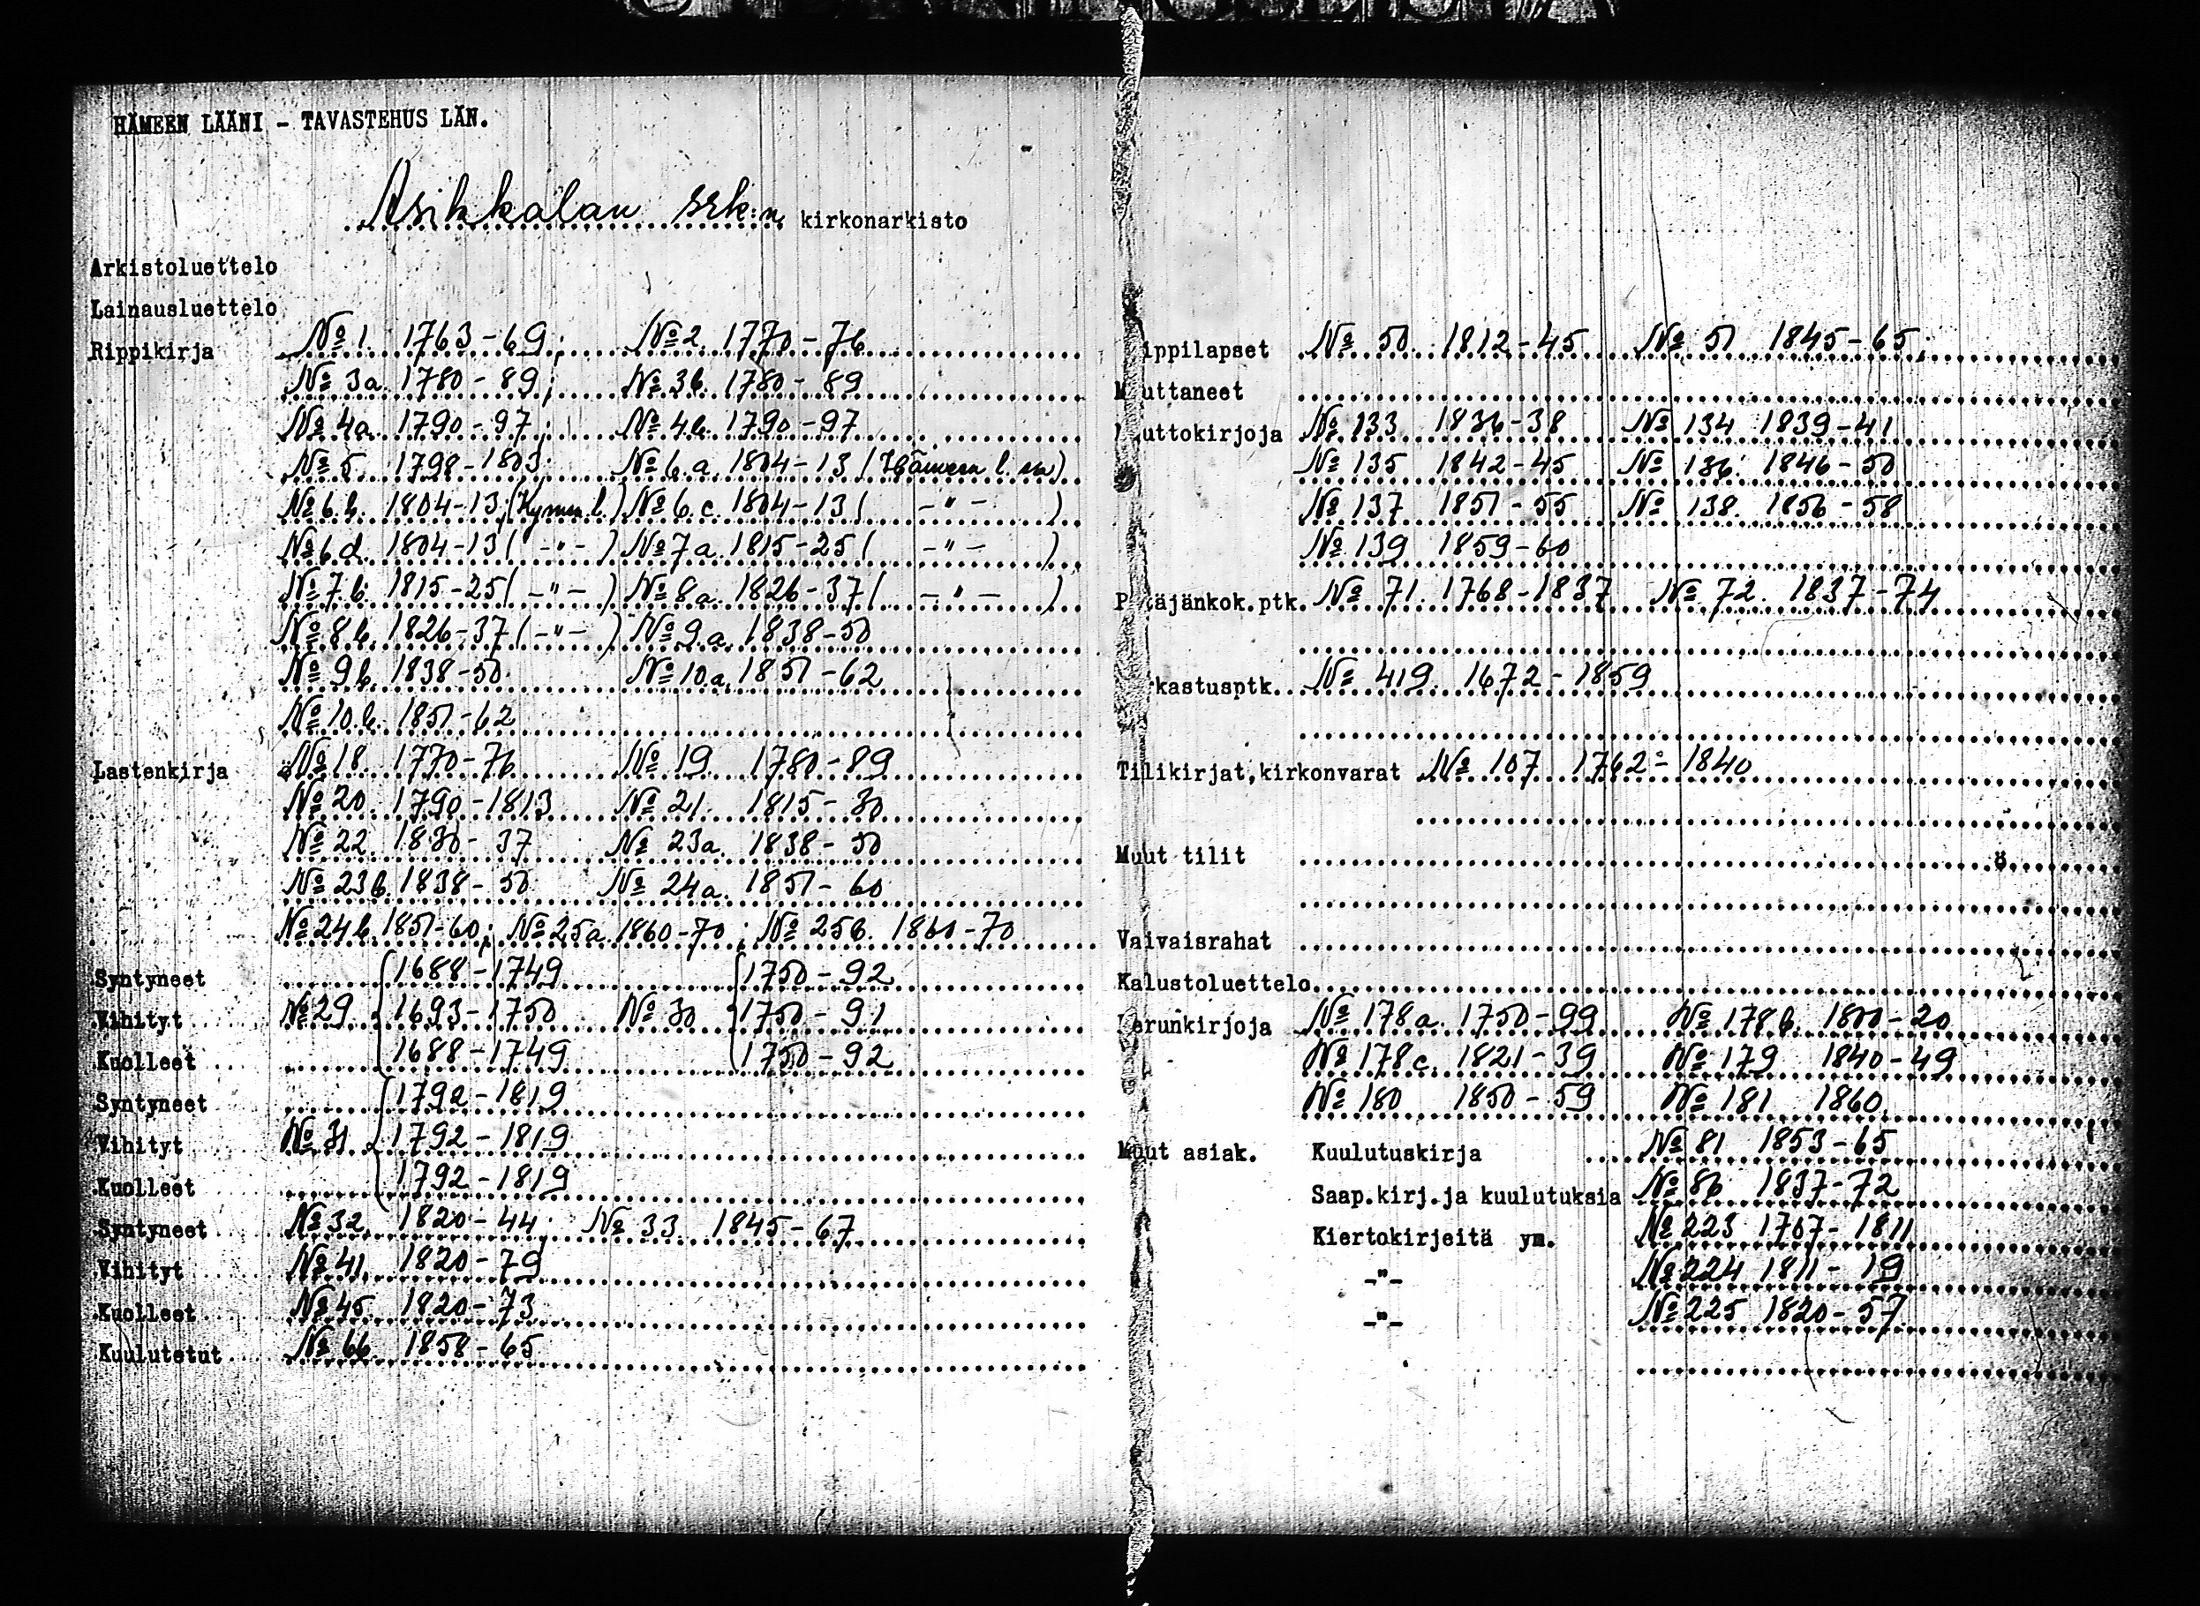 HÄMEEN LÄÄNI - TAVASTEHUS LÄN.
Asikkalan srk:n kirkonarkisto
Arkistoluettelo
Lainausluettelo
Rippikirja № 1. 1763-69; № 2. 1770-76
№ 3a. 1780-89; № 3b. 1780-89
№ 4a. 1790-97; № 4b. 1790-97
№ 5. 1798-1803; № 6.a. 1804-13 (Hämeen l. )
№ 6.b. 1804-13; (Kymen l.) № 6.c. 1804-13 ( -"- )
№ 6.d. 1804-13 ( -"- ) № 7a. 1815-25 ( -"- )
№ 7.b. 1815-25 ( -"- ) № 8a. 1826-37 ( -"- )
№ 8.b. 1826-37 ( -"- ) № 9.a. 1838-50
№ 9b. 1838-50 № 10.a. 1851-62
№ 10.b. 1851-62
Lastenkirja № 18. 1770-76 № 19 1780-89
№ 20. 1790-1813 № 21. 1815-30
№ 22. 1830-37 № 23a. 1838-50
№ 23b. 1838-50 № 24a. 1851-60
№ 24b. 1851-60; № 25a 1860-70; № 25b. 1860-70
Syntyneet 1688-1749 1750-92
Vihityt № 29. 1693-1750 № 30 1750-91
Kuolleet 1688-1749 1750-92
Syntyneet 1792-1819
Vihityt № 31 1792-1819
Kuolleet 1792-1819
Syntyneet № 32. 1820-44; № 33. 1845-67
Vihityt № 41. 1820-79
Kuolleet № 45. 1820-73
Kuulutetut № 66. 1858-65
ippilapset № 50 1812-45 № 51 1845-65;
Muuttaneet
uttokirjoja № 133 1836-38 № 134 1839-41
№ 135 1842-45 № 136. 1846-50
№ 137 1851-55 № 138. 1856-58
№ 139 1859-60
P täjänkok.ptk. № 71. 1768-1837 № 72. 1837-74
kastusptk. № 419. 1672-1859
Tilikirjat,kirkonvarat № 107 1762-1840
Muut tilit
Vaivaisrahat
Kalustoluettelo
Perunkirjoja № 178a. 1750-99 № 178b. 1800-20
№ 178c. 1821-39 № 179 1840-49
№ 180 1850-59 № 181 1860
Muut asiak. Kuulutuskirja № 81 1853-65
Saap.kirj.ja kuulutuksia № 86 1837-72
Kiertokirjeitä ym. № 223 1707-1811
-"- № 224 1811-19
-"- № 225 1820-57